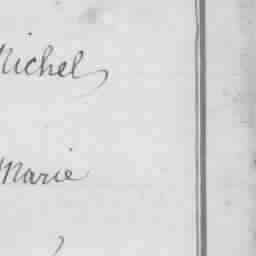 Michel
Marie